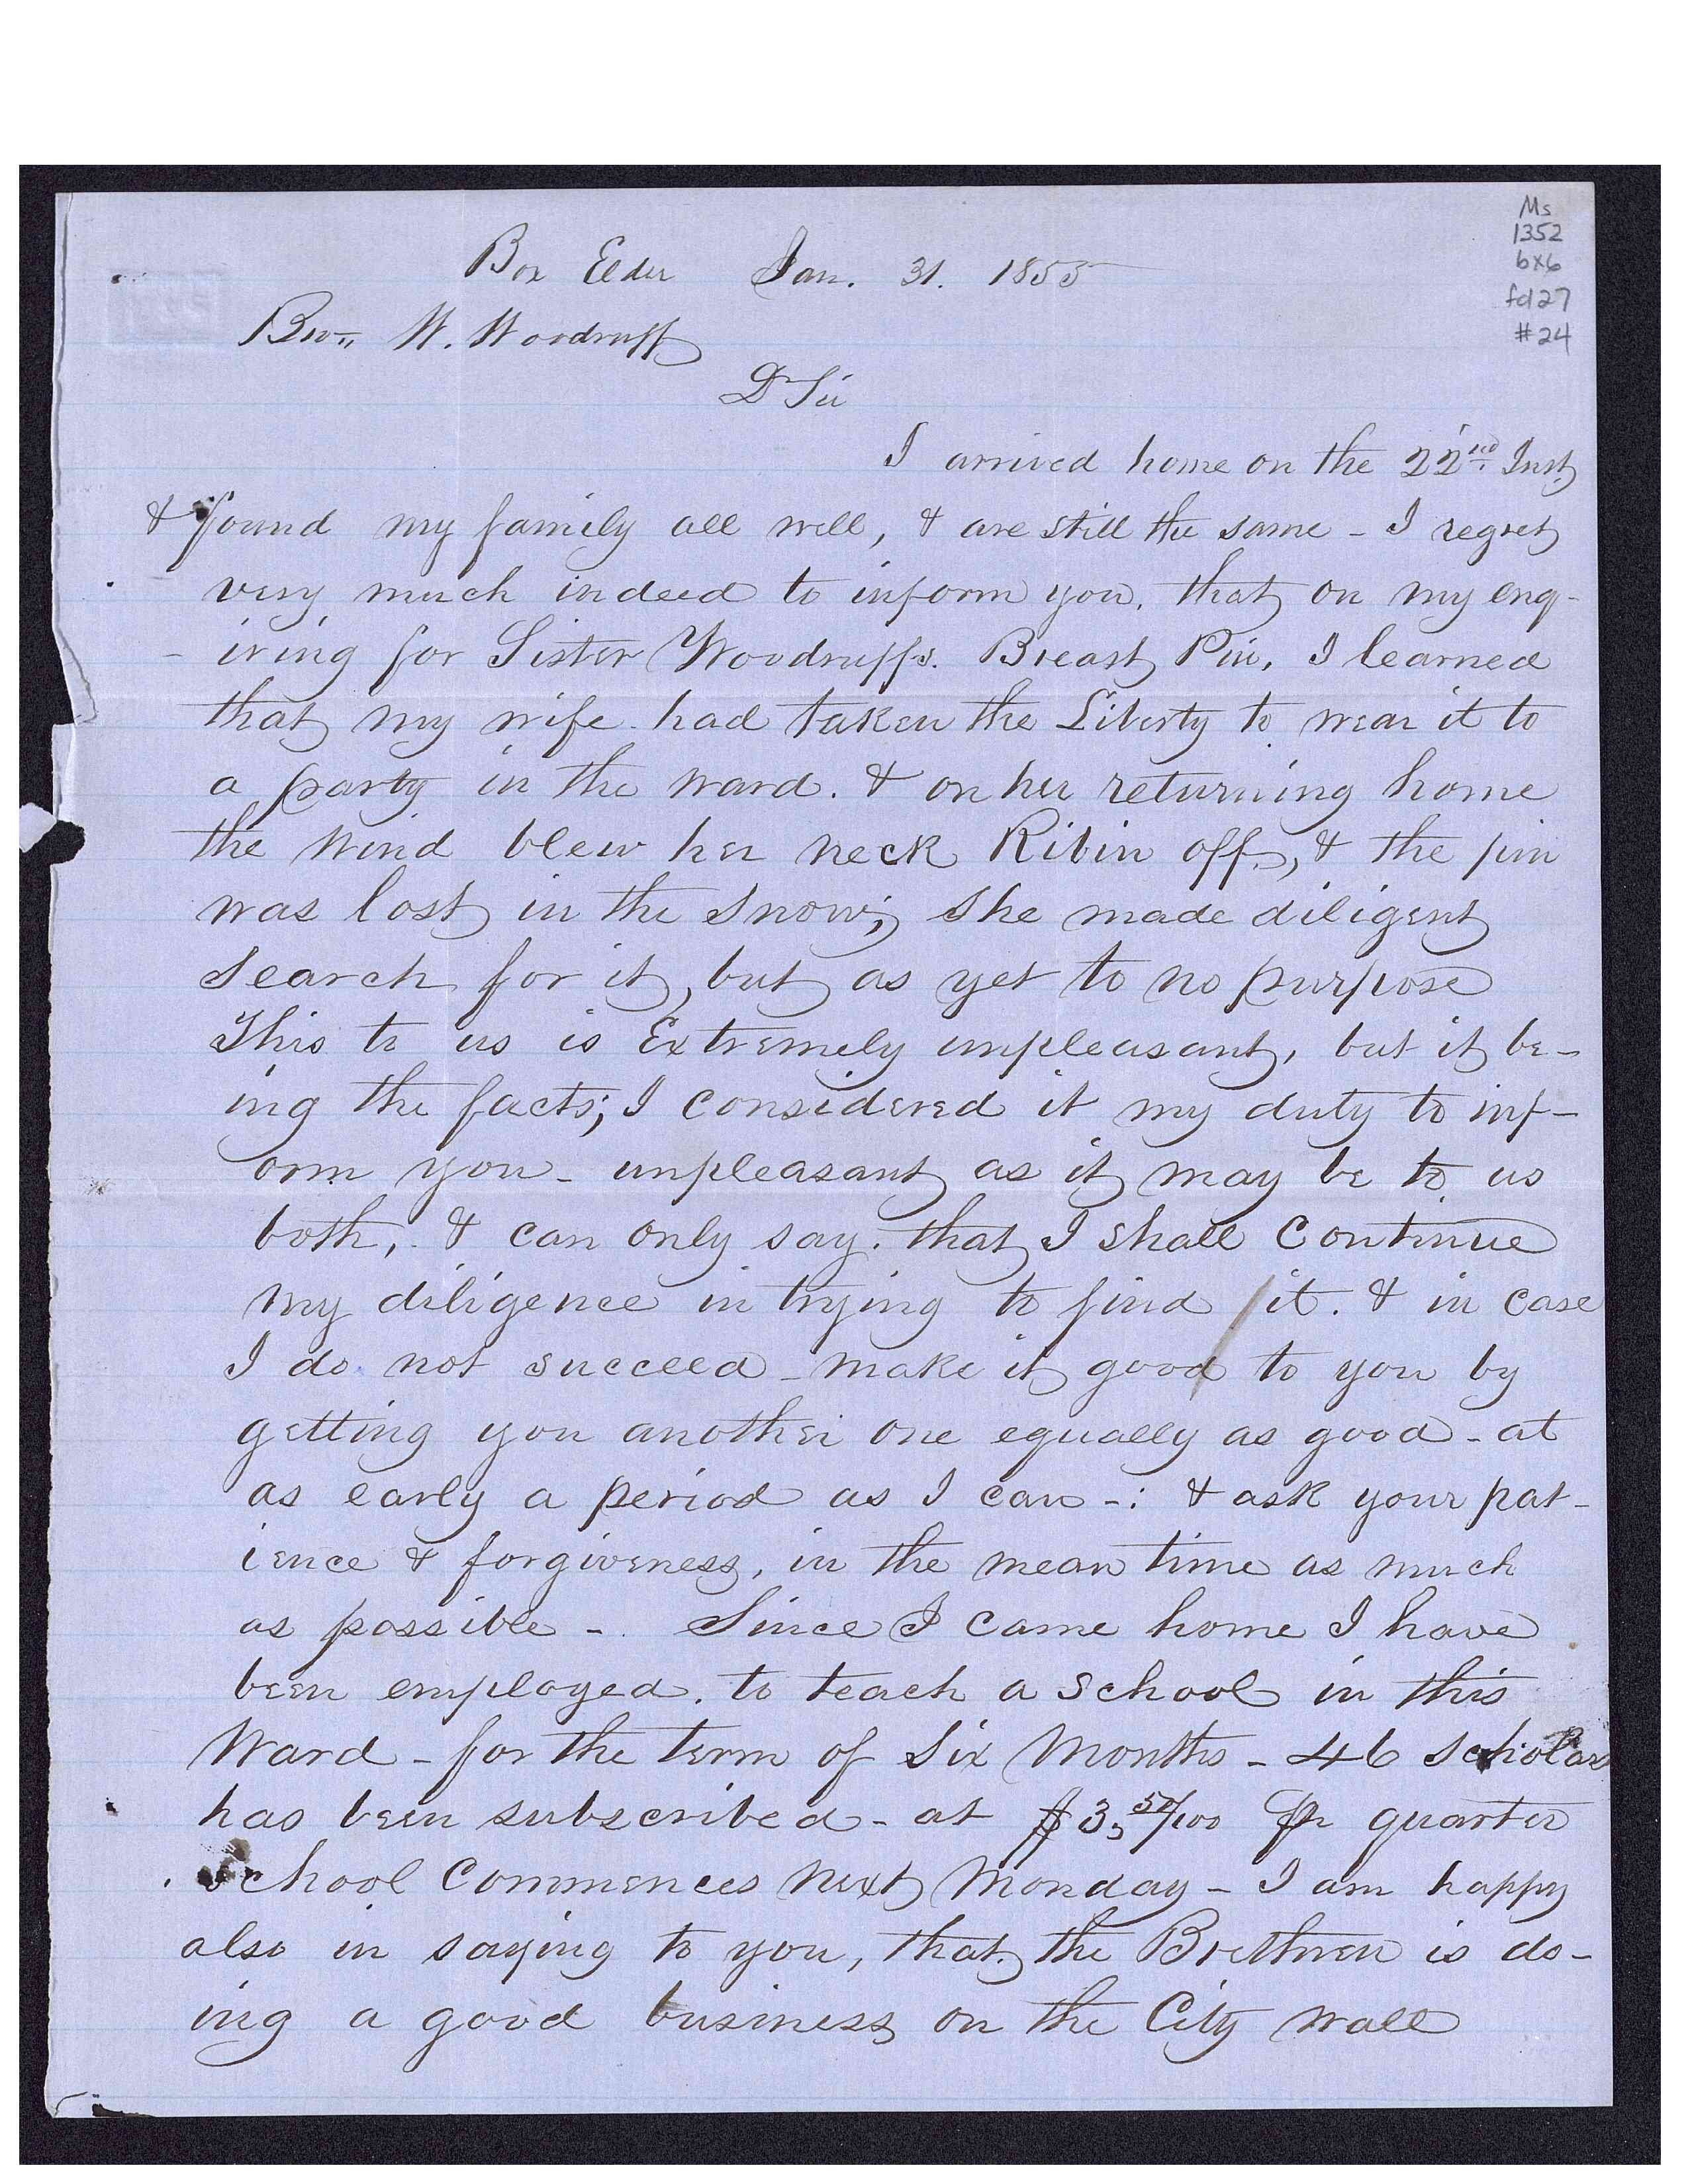 Ms
1352
bx6
fd27
#24
Box Elder Jan. 31. 1855
Bro., W. Woodruff
D Sir
I arrived home on the 22nd Inst
& found my family all well, & are still the same - I regret
very much indeed to inform you, that on my enq-
-iring for Sister Woodruffs. Breast Pin, I learned
that my wife had taken the Liberty to wear it to
a party in the ward. & on her returning home
the wind blew her neck Ribin off, & the pin
was lost in the snow; she made diligent
search for it, but as yet to no purpose
This to us is Extremely unpleasant, but it be-
ing the facts; I considered it my duty to inf-
orm you - unpleasant as it may be to us
both, & can only say, that I shall Continue
my diligence in trying to find it. & in case
I do not succeed - make it good to you by
getting you another one equally as good - at
as early a period as I can -: & ask your pat-
ience & forgiveness, in the mean time as much
as possible - Since I came home I have
been employed, to teach a school in this
Ward - for the term of Six Months - 46 scholars
has been subscribed - at $3,50/100 Pr quarter
School Commences next Monday - I am happy
also in saying to you, that the Brethren is do-
ing a good business on the City wall